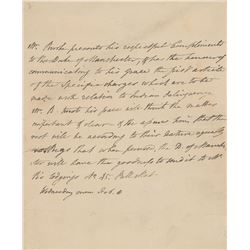 Mr. Burke presents his respectful Compliments
to the Duke of Manchester, & has the honour of
communicating to his Grace the first article
of the specifick charges which are to be
made with relation to Indian delinquency.
Mr. B. trusts his Grace will think the matter
important & clear & He assures him that the
rest will be according to their Nature equally
that when perused, the D. of Manches
ter will have the goodness to send it to Mr
his lodgings No. 45. Pall Mall.
Wednesday Feb. 6